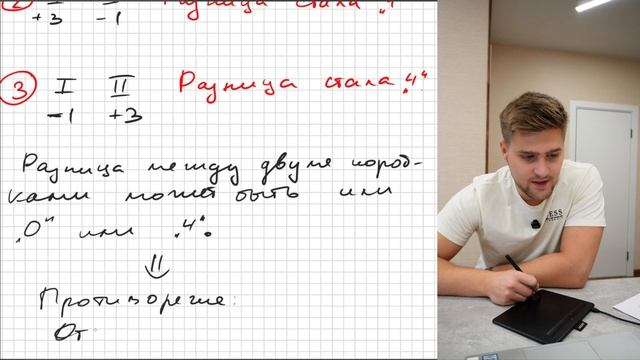 ② I II Разница стала „4"
+3 -1
③ I II Разница стала „4".
-1 +3
Разница между двумя короб-
ками может быть или
„0" или „4".
⇓
Противоречие:
От
ESS